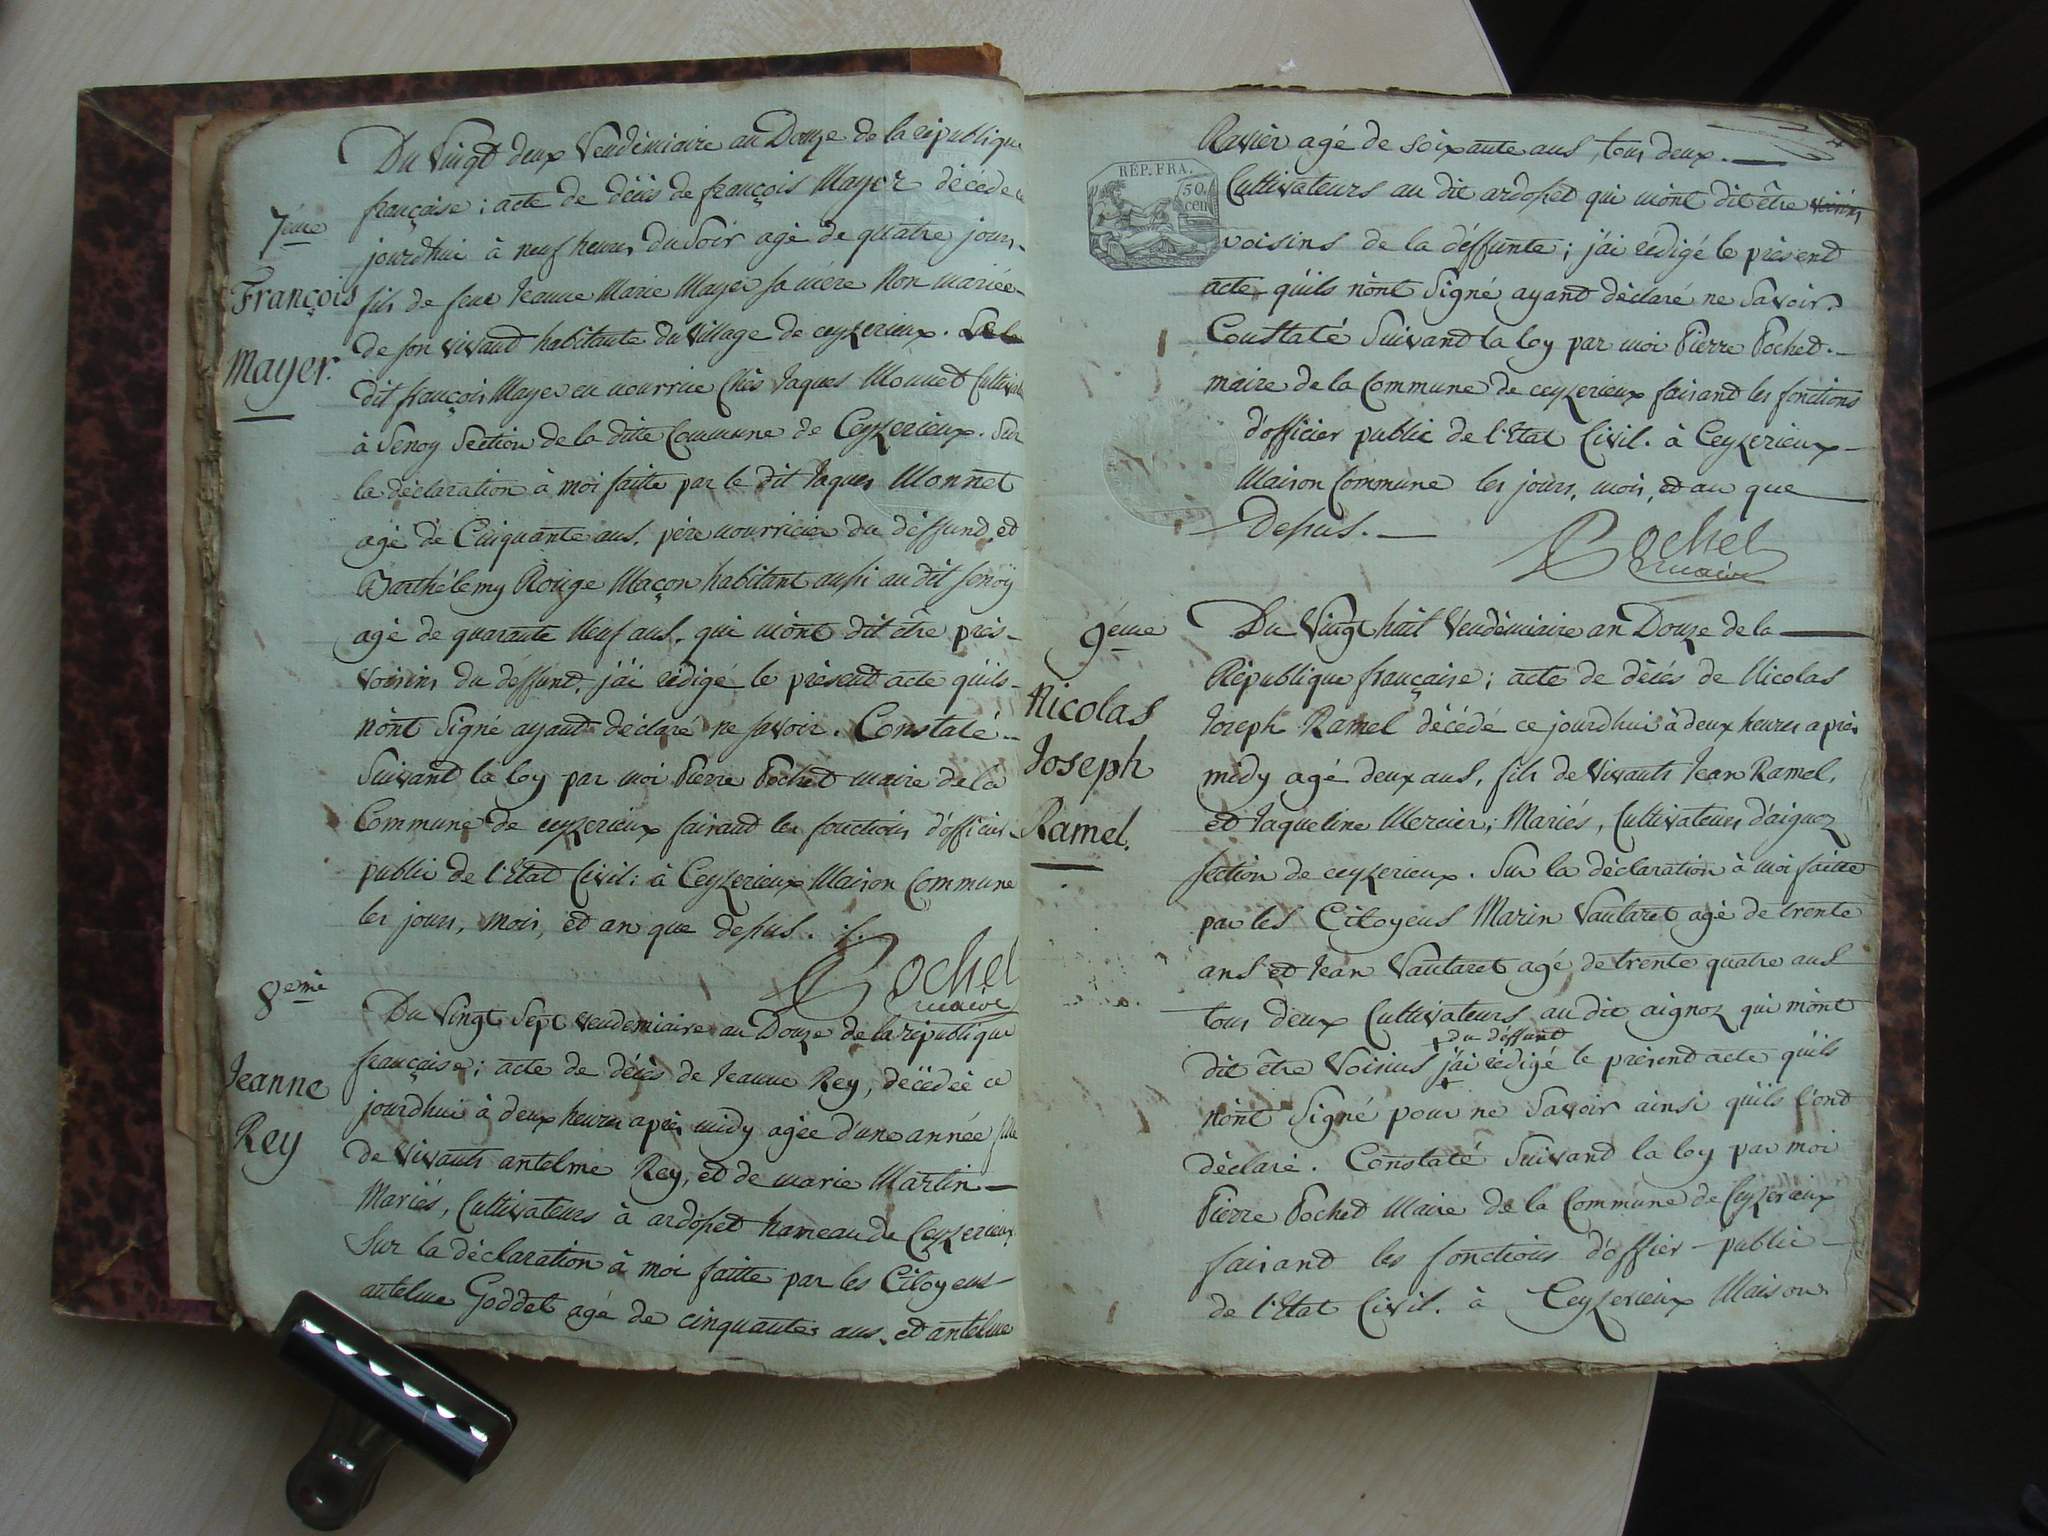 Du Vingt deux Vendémiaire an Douze de la république
françoise ; acte de décès de françois Mayer décédé ce
jourdhui à neuf heures du Soir agé de quatre jours
fils de feue Jeanne Marie Mayer sa mère Non mariée
de son vivand habitante du village de ceyzerieux.
dit françois Mayer en nourrice Chès Jaques Monnet Cultivateur
à Senoy Section de la ditte Commune de Ceyzerieux. Sur
la déclaration à moi faitte par le dit Jaques Monnet
agé de Cinquante ans, père nourricier du déffund, et
Barthélemy Rouge Maçon habitant aussi au dit senoÿ
agé de quarante Neuf ans, qui m'ont dit être près
voisins du déffund, j'ài rédigé le présend acte quils
n'ont Signé ayant déclaré ne savoir. Constaté
Suivand la loy par moi Pierre Pochet maire de la
Commune de ceyzerieux faisand les fonctions d'officier
public de l'Etat Civil : à Ceyzerieux Maison Commune
les jours, mois, et an que dessus. ./.
Pochet
maire
7ème
François
Mayer.
8eme
Jeanne
Rey
Du Vingt Sept vendemiaire an Douze de la république
française ; acte de décès de Jeanne Rey, décédée ce
jourdhui à deux heures après midy agée d'une année fille
de Vivants antelme Rey, et de marie Martin
Mariés, Cultivateurs à ardosset hameau de Ceyzerieux
Sur la déclaration à moi faitte par les Citoyens
antelme Goddet agé de cinquante ans, et antelme
Ravier agé de soixante ans, tous deux.
RÉP. FRA.
50.
cen
Cultivateurs au dit ardosset qui m'ont dit être voisins
voisins de la déffunte ; j'ai rédigé le présend
acte quils n'ont Signé ayand déclaré ne Savoir.
Constaté Suivand la loy par moi Pierre Pochet.
maire de la Commune de ceyzerieux faisand les fonctions
d'officier public de l'Etat Civil. à Ceyzerieux
Maison Commune les jours, mois, et an que
Dessus.
Pochet
maire
9eme
Nicolas
Joseph
Ramel.
Du Vingt huit Vendémiaire an Douze de la
République française ; acte de décès de Nicolas
Joseph Ramel décédé ce jourdhui à deux heures après
midy agé deux ans, fils de Vivants Jean Ramel,
et Jaqueline Mercier ; Mariés, Cultivateurs d'aignoz
section de ceyzerieux. Sur la déclaration à moi faitte
par les Citoyens Marin Vautaret agé de trente
ans et Jean Vautaret agé de trente quatre ans
tous deux Cultivateurs au dit aignoz qui m'ont
du déffunt
dit être Voisins j'ai rédigé le présend acte qu'ils
n'ont Signé pour ne Savoir ainsi qu'ils l'ont
déclaré. Constaté Suivand la loy par moi
Pierre Pochet Maire de la Commune de Ceyzerieux
faisand les fonctions d'offier public
de l'Etat Civil. à Ceyzerieux Maison